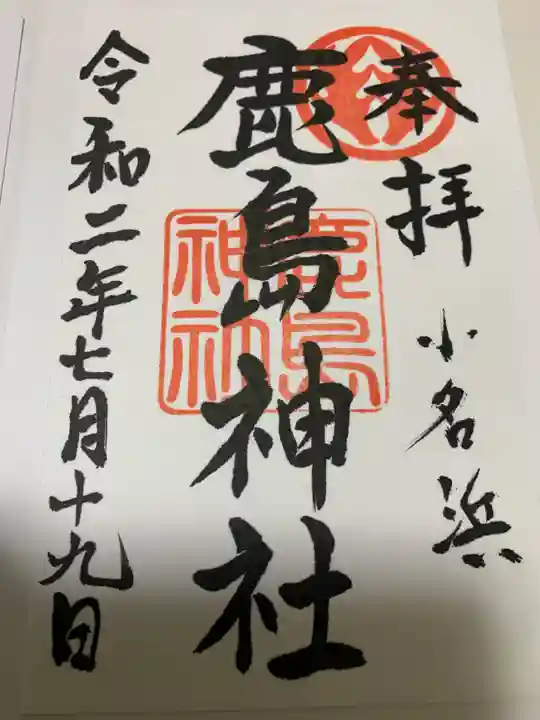 奉拝 小名浜
鹿島神社
鹿島神社
令和二年七月十九日